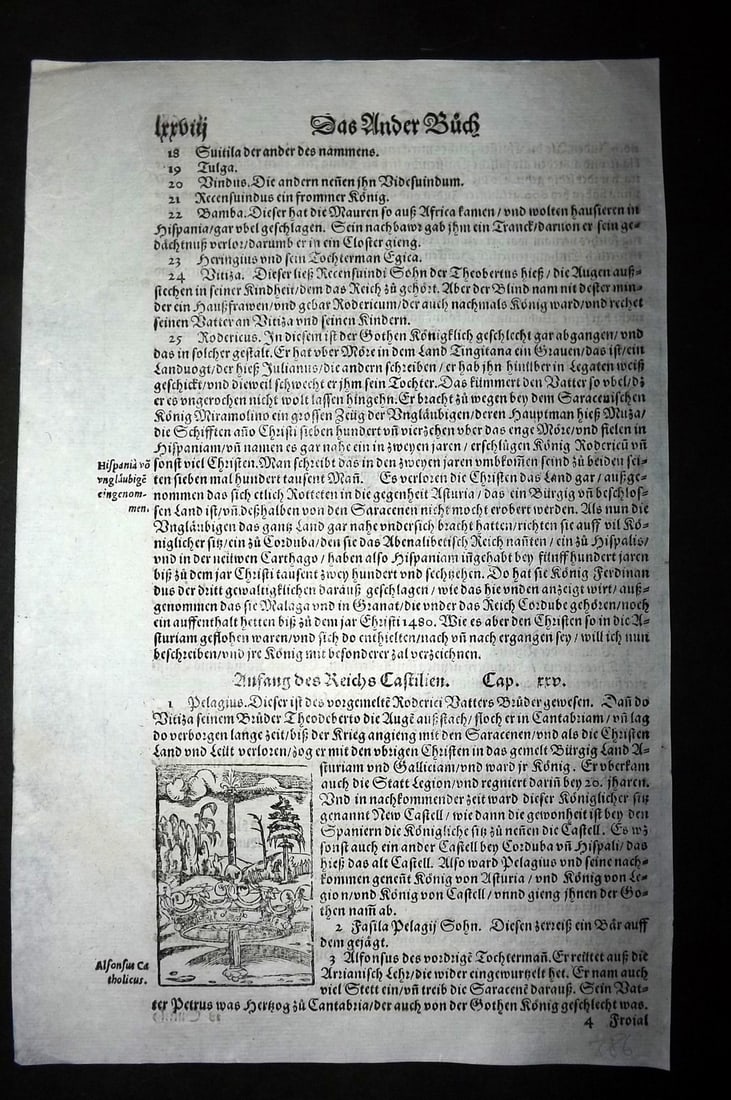 lxxviij Das Ander Bůch
18 Suitila der ander des nammens.
19 Tulga.
20 Vindus. Die andern neñen jhn Videsuindum.
21 Recensuindus ein frommer König.
22 Bamba. Dieser hat die Mauren so auß Africa kamen / vnd wolten haussieren in
Hispania / gar vbel geschlagen. Sein nachbawr gab jhm ein Tranck / daruon er sein ge-
dächtnuß verlor / darumb er in ein Closter gieng.
23 Heringius vnd sein Tochterman Egica.
24 Vitiza. Dieser ließ Recensuindi Sohn der Theobertus hieß / die Augen auß-
stechen in seiner Kindheit / dem das Reich zů gehört. Aber der Blind nam nit dester min-
der ein Haußfrawen / vnd gebar Rodericum / der auch nachmals König ward / vnd rechet
seinen Vatter an Vitiza vnd seinen Kindern.
25 Rodericus. In diesem ist der Gothen Königklich geschlecht gar abgangen / vnd
das in solcher gestalt. Er hat vber Möre in dem Land Tingitana ein Grauen / das ist / ein
Landuogt / der hieß Julianus / die andern schreiben / er hab jhn hinüber in Legaten weiß
geschickt / vnd dieweil schwecht er jhm sein Tochter. Das kümmert den Vatter so vbel / dz
er es vngerochen nicht wolt lassen hingehn. Er bracht zů wegen bey dem Saracenischen
König Miramolino ein grossen Zeüg der Vngläubigen / deren Hauptman hieß Muza /
die Schifften año Christi sieben hundert vñ vierzehen vber das enge Möre / vnd fielen in
Hispaniam / vñ namen es gar nahe ein in zweyen jaren / erschlůgen König Rodericũ vñ
Hispania võ
vnglaubigẽ
eingenom-
men.
sonst viel Christen. Man schreibt das in den zweyen jaren vmbkom̃en seind zů beiden sei-
ten sieben mal hundert tausent Mañ. Es verloren die Christen das Land gar / außge-
nommen das sich etlich Rotteten in die gegenheit Asturia / das ein Bürgig vñ beschlos-
sen Land ist / vñ deßhalben von den Saracenen nicht mocht erobert werden. Als nun die
Vngläubigen das gantz Land gar nahe vndersich bracht hatten / richten sie auff vil Kö-
niglicher sitz / ein zů Corduba / den sie das Abenalibetisch Reich nañten / ein zů Hispalis /
vnd in der neüwen Carthago / haben also Hispaniam ingehabt bey fünffhundert jaren
biß zů dem jar Christi tausent zwey hundert vnd sechzehen. Do hat sie König Ferdinan
dus der dritt gewaltigklichen darauß geschlagen / wie das hie vnden anzeigt wirt / auß-
genommen das sie Malaga vnd in Granat / die vnder das Reich Cordube gehören / noch
ein auffenthalt hetten biß zů dem jar Christi 1480. Wie es aber den Christen so in die A-
sturiam geflohen waren / vnd sich do enthielten / nach vñ nach ergangen sey / will ich nun
beschreiben / vnd jre König mit besonderer zal verzeichnen.
Anfang des Reichs Castilien. Cap. xxv.
1 Pelagius. Dieser ist des vorgemeltẽ Roderici Vatters Brůder gewesen. Dañ do
Vitiza seinem Brůder Theodeberto die Augẽ außstach / floch er in Cantabriam / vñ lag
do verborgen lange zeit / biß der Krieg angieng mit den Saracenen / vnd als die Christen
Land vnd Leüt verloren / zog er mit den vbrigen Christen in das gemelt Bürgig Land A-
sturiam vnd Galliciam / vnd ward jr König. Er vberkam
auch die Statt Legion / vnd regniert dariñ bey 20. jharen.
Vnd in nachkommender zeit ward dieser Königlicher sitz
genannt New Castell / wie dann die gewonheit ist bey den
Spaniern die Königliche sitz zů neñen die Castell. Es wz
sonst auch ein ander Castell bey Corduba vñ Hispali / das
hieß das alt Castell. Also ward Pelagius vnd seine nach-
kommen geneñt König von Asturia / vnd König von Le-
gion / vnd König von Castell / vnnd gieng jhnen der Go-
then nam̃ ab.
2 Fasila Pelagij Sohn. Diesen zerreiß ein Bär auff
dem gejägt.
3 Alfonsus des vordrigẽ Tochtermañ. Er reütet auß die
Alfonsus Ca
tholicus.
Arrianisch Lehr / die wider eingewurtzelt het. Er nam auch
viel Stett ein / vñ treib die Saracenẽ darauß. Sein Vat-
ter Petrus was Hertzog zů Cantabria / der auch von der Gothen König geschlecht was.
4 Froial